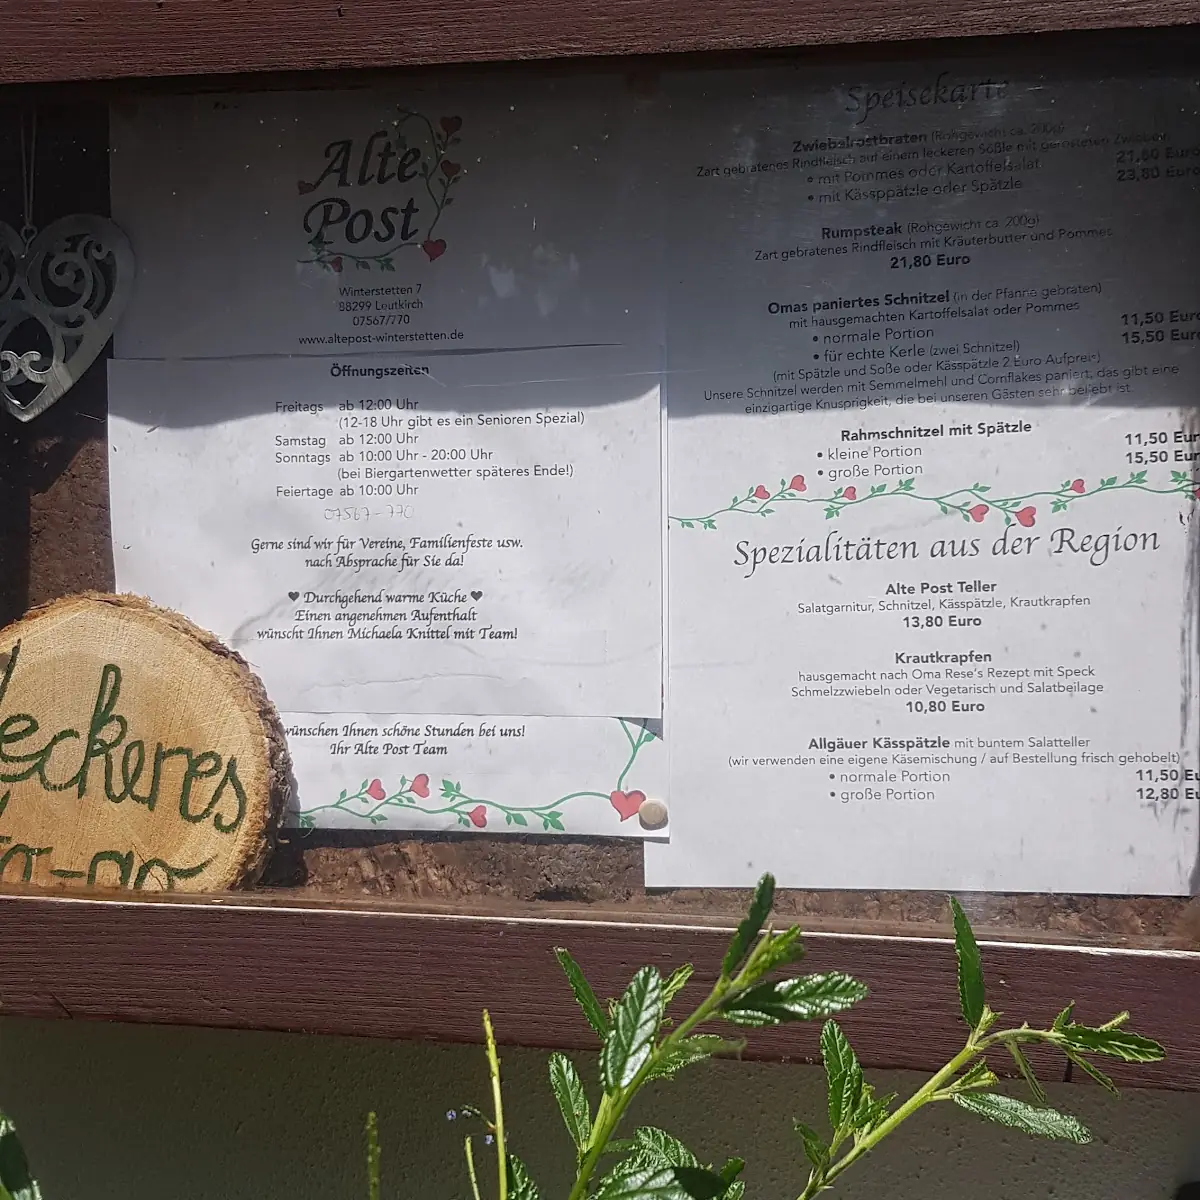 Alte
Post
Winterstetten 7
88299 Leutkirch
07567/770
www.altepost-winterstetten.de
Öffnungszeiten
Freitags ab 12:00 Uhr
(12-18 Uhr gibt es ein Senioren Spezial)
Samstag ab 12:00 Uhr
Sonntags ab 10:00 Uhr - 20:00 Uhr
(bei Biergartenwetter späteres Ende!)
Feiertage ab 10:00 Uhr
07567-770
Gerne sind wir für Vereine, Familienfeste usw.
nach Absprache für Sie da!
♥ Durchgehend warme Küche ♥
Einen angenehmen Aufenthalt
wünscht Ihnen Michaela Knittel mit Team!
wünschen Ihnen schöne Stunden bei uns!
Ihr Alte Post Team
leckeres
to-go
Speisekarte
Zwiebelrostbraten (Rohgewicht ca. 200g)
Zart gebratenes Rindfleisch auf einem leckeren Sößle mit gerösteten Zwiebeln
• mit Pommes oder Kartoffelsalat 21,80 Euro
• mit Kässppätzle oder Spätzle 23,80 Euro
Rumpsteak (Rohgewicht ca. 200g)
Zart gebratenes Rindfleisch mit Kräuterbutter und Pommes
21,80 Euro
Omas paniertes Schnitzel (in der Pfanne gebraten)
mit hausgemachten Kartoffelsalat oder Pommes
• normale Portion 11,50 Euro
• für echte Kerle (zwei Schnitzel) 15,50 Euro
(mit Spätzle und Soße oder Kässpätzle 2 Euro Aufpreis)
Unsere Schnitzel werden mit Semmelmehl und Cornflakes paniert, das gibt eine
einzigartige Knusprigkeit, die bei unseren Gästen sehr beliebt ist.
Rahmschnitzel mit Spätzle
• kleine Portion 11,50 Eur
• große Portion 15,50 Eur
Spezialitäten aus der Region
Alte Post Teller
Salatgarnitur, Schnitzel, Kässpätzle, Krautkrapfen
13,80 Euro
Krautkrapfen
hausgemacht nach Oma Rese's Rezept mit Speck
Schmelzzwiebeln oder Vegetarisch und Salatbeilage
10,80 Euro
Allgäuer Kässpätzle mit buntem Salatteller
(wir verwenden eine eigene Käsemischung / auf Bestellung frisch gehobelt)
• normale Portion 11,50 Eu
• große Portion 12,80 Eu